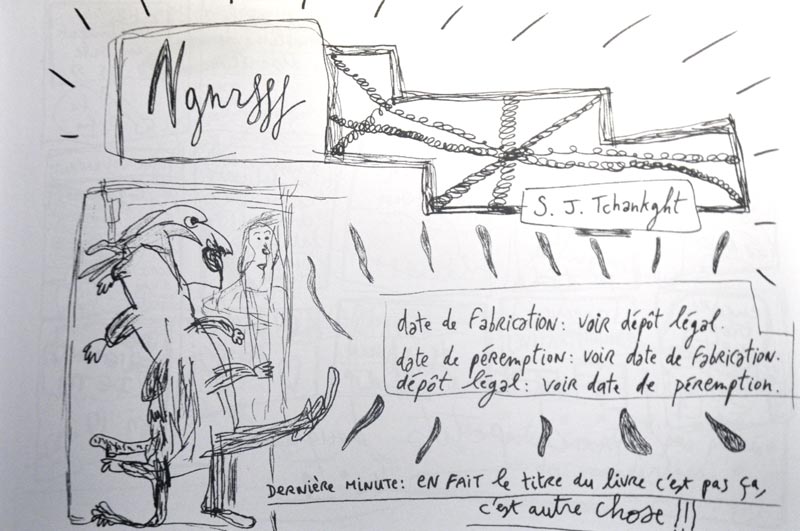 Ngnrsss
S. J. Tchankght
date de Fabrication: voir dépôt légal.
date de péremption: voir date de Fabrication.
dépôt légal: voir date de péremption.
DERNIÈRE MINUTE: EN FAIT le titre du livre c'est pas ça,
c'est autre chose !!!